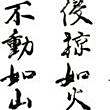 侵掠如火
不動如山